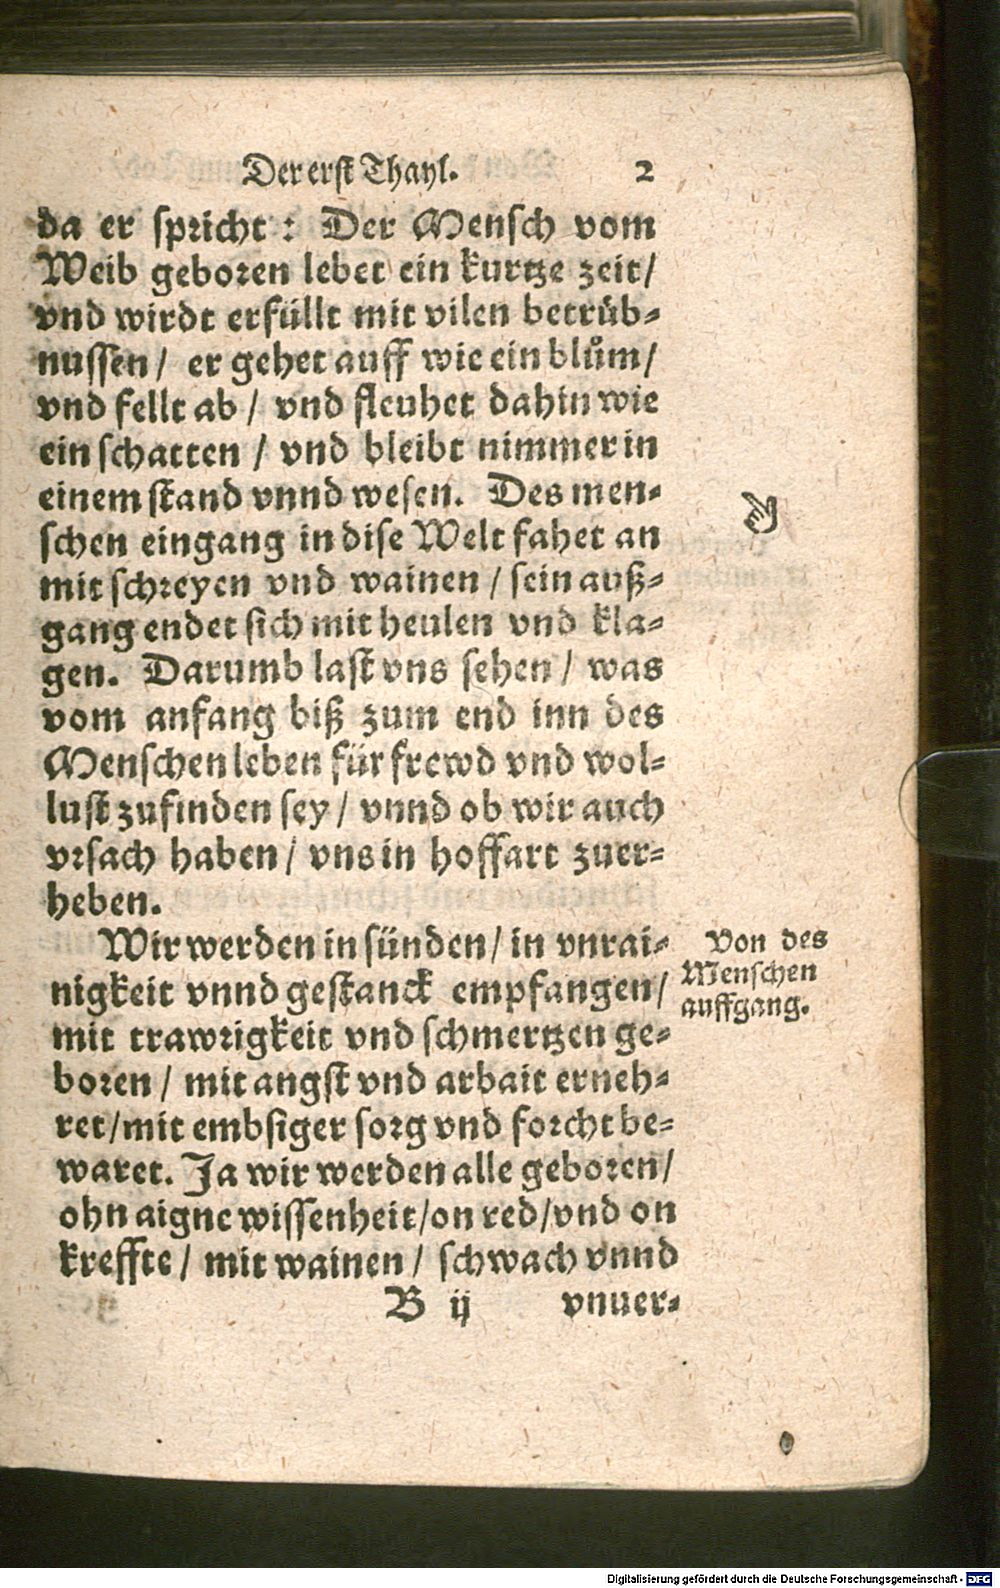 Der erst Thayl. 2
da er spricht: Der Mensch vom
Weib geboren lebet ein kurtze zeit/
vnd wirdt erfüllt mit vilen betrůb-
nussen/ er gehet auff wie ein blům/
vnd fellt ab/ vnd fleuhet dahin wie
ein schatten/ vnd bleibt nimmer in
einem stand vnnd wesen. Des men-
schen eingang in dise Welt fahet an
mit schreyen vnd wainen/ sein auß-
gang endet sich mit heulen vnd kla-
gen. Darumb last vns sehen/ was
vom anfang biß zum end inn des
Menschen leben für frewd vnd wol-
lust zufinden sey/ vnnd ob wir auch
vrsach haben/ vns in hoffart zuer-
heben.
Wir werden in sünden/ in vnrai-
nigkeit vnnd gestanck empfangen/
mit trawrigkeit vnd schmertzen ge-
boren/ mit angst vnd arbait erneh-
ret/mit embsiger sorg vnd forcht be-
waret. Ja wir werden alle geboren/
ohn aigne wissenheit/on red/vnd on
kreffte/ mit wainen/ schwach vnnd
B ij vnuer-
Von des
Menschen
auffgang.
Digitalisierung gefördert durch die Deutsche Forschungsgemeinschaft - DFG